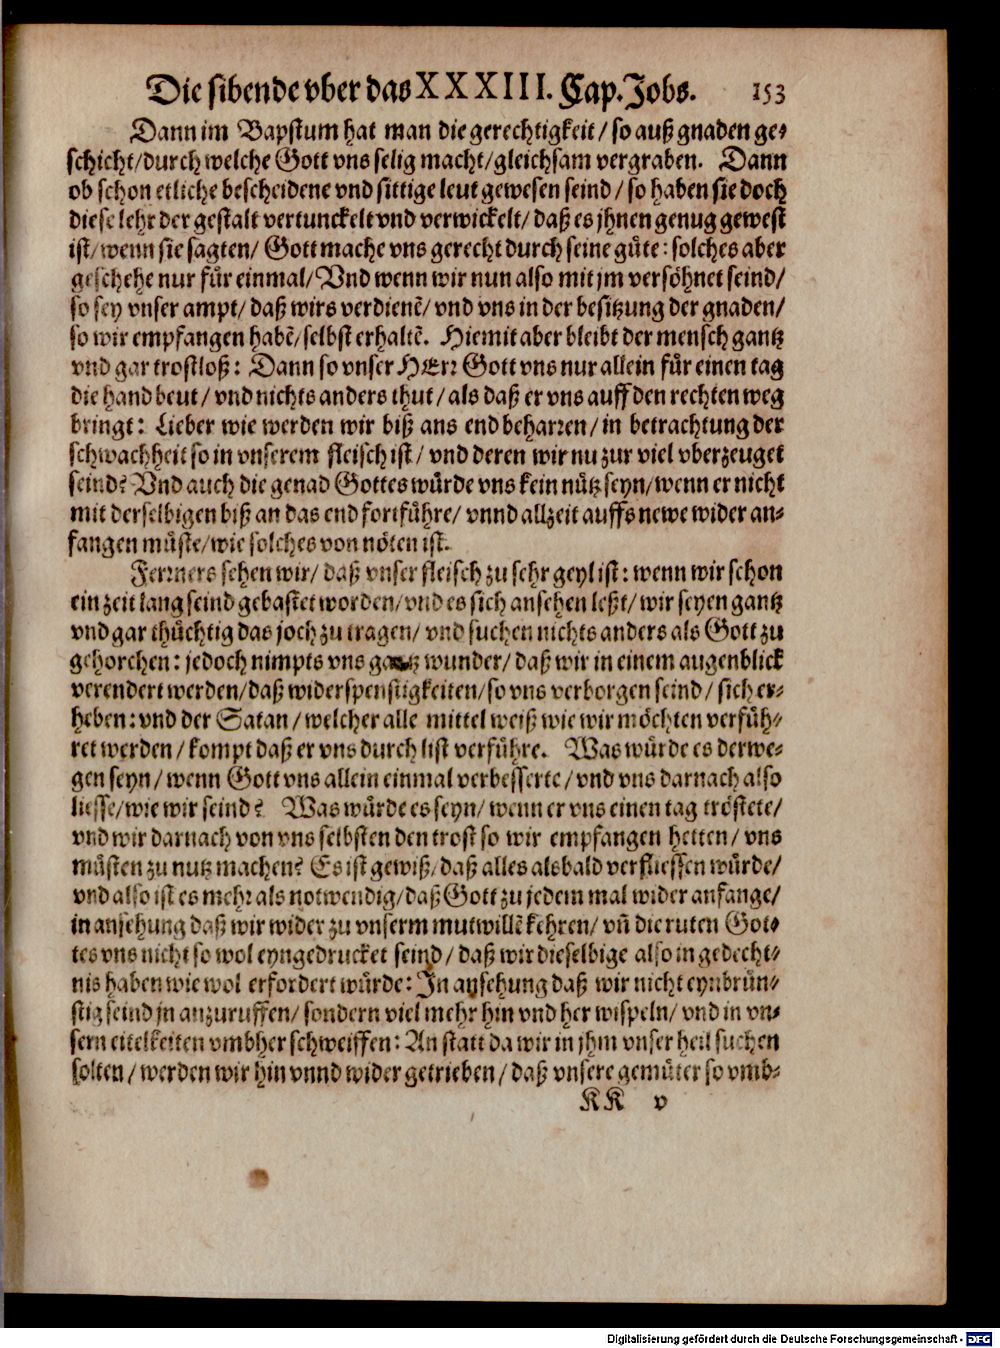 Die sibende vber das XXXIII. Cap. Jobs. 153
Dann im Bapstum hat man die gerechtigkeit/ so auß gnaden ge-
schicht/ durch welche Gott vns selig macht/ gleichsam vergraben. Dann
ob schon etliche bescheidene vnd sittige leut gewesen seind/ so haben sie doch
diese lehr der gestalt vertunckelt vnd verwickelt/ daß es jhnen genug gewest
ist/ wenn sie sagten/ Gott mache vns gerecht durch seine gůte: solches aber
geschehe nur fůr einmal/ Vnd wenn wir nun also mit jm versöhnet seind/
so sey vnser ampt/ daß wirs verdienẽ/ vnd vns in der besitzung der gnaden/
so wir empfangen habẽ/ selbst erhaltẽ. Hiemit aber bleibt der mensch gantz
vnd gar trostloß: Dann so vnser HErr Gott vns nur allein fůr einen tag
die hand beut/ vnd nichts anders thut/ als daß er vns auff den rechten weg
bringt: Lieber wie werden wir biß ans end beharren/ in betrachtung der
schwachheit so in vnserem fleisch ist/ vnd deren wir nu zur viel vberzeuget
seind? Vnd auch die genad Gottes wůrde vns kein nůtz seyn/ wenn er nicht
mit derselbigen biß an das end fortfůhre/ vnnd allzeit auffs newe wider an-
fangen můste/ wie solches von nöten ist.
Ferrners sehen wir/ daß vnser fleisch zu sehr geyl ist: wenn wir schon
ein zeit lang seind gebastet worden/ vnd es sich ansehen leßt/ wir seyen gantz
vnd gar thůchtig das joch zu tragen/ vnd suchen nichts anders als Gott zu
gehorchen: jedoch nimpts vns gantz wunder/ daß wir in einem augenblick
verendert werden/ daß widerspenstigkeiten/ so vns verborgen seind/ sich er-
heben: vnd der Satan/ welcher alle mittel weiß wie wir möchten verfůh-
ret werden/ kompt daß er vns durch list verfůhre. Was wůrde es derwe-
gen seyn/ wenn Gott vns allein einmal verbesserte/ vnd vns darnach also
liesse/ wie wir seind? Was wůrde es seyn/ wenn er vns einen tag tröstete/
vnd wir darnach von vns selbsten den trost so wir empfangen hetten/ vns
můsten zu nutz machen? Es ist gewiß/ daß alles alsbald verfliessen wůrde/
vnd also ist es mehr als notwendig/ daß Gott zu jedem mal wider anfange/
in ansehung daß wir wider zu vnserm mutwillẽ kehren/ vñ die ruten Got-
tes vns nicht so wol eyngedrucket seind/ daß wir dieselbige also in gedecht-
nis haben wie wol erfordert wůrde: In aysehung daß wir nicht eynbrůn-
stig seind jn anzuruffen/ sondern viel mehr hin vnd her wispeln/ vnd in vn-
sern eitelkeiten vmbher schweiffen: An statt da wir in jhm vnser heil suchen
solten/ werden wir hin vnnd wider getrieben/ daß vnsere gemůter so vmb-
KK v
Digitalisierung gefördert durch die Deutsche Forschungsgemeinschaft - DFG